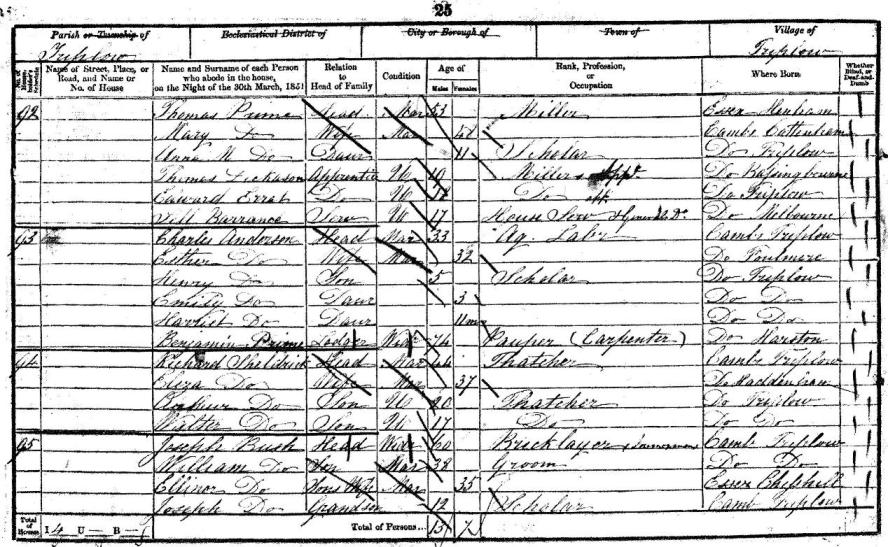 25
Parish or Township of Ecclesiastical District of City or Borough of Town of Village of
Triplow Triplow
No. of Householder's Schedule Name of Street, Place, or Road, and Name or No. of House Name and Surname of each Person who abode in the house, on the Night of the 30th March, 1851 Relation to Head of Family Condition Age of Males Females Rank, Profession, or Occupation Where Born Whether Blind, or Deaf-and-Dumb
92 Thomas Prime Head Mar 53 Miller Essex
Mary Do Wife Mar Cambs Cottenham
Anna M Do Daur 11 Scholar Do Triplow
Thomas Apprentice Un 19 Millers App Do Bassingbourne
Edward Do Un Do Do Triplow
Barrance Serv Un 17 House Serv Do Melbourne
93 Charles Anderson Head Mar 33 Ag. Labr Cambs Triplow
Esther Do Wife Mar 32 Do Foulmere
Henry Do Son 5 Scholar Do Triplow
Emily Do Daur 3 Do Do
Harriet Do Daur 11 mo Do Do
Benjamin Prime Lodger Widr 74 Pauper (Carpenter) Do Harston
94 Richard Sheldrick Head Mar 44 Thatcher Cambs Triplow
Eliza Do Wife Mar 37 Do Haddenham
Arthur Do Son Un 20 Thatcher Do Triplow
Walter Do Son Un 17 Do Do Do
95 Joseph Bush Head Widr 60 Bricklayer Cambs Triplow
William Do Son Mar 38 Groom Do Do
Ellinor Do Sons Wife Mar 35 Essex
Joseph Do Grandson 12 Scholar Camb Triplow
Total of Houses I 4 U — B — Total of Persons... 13 7